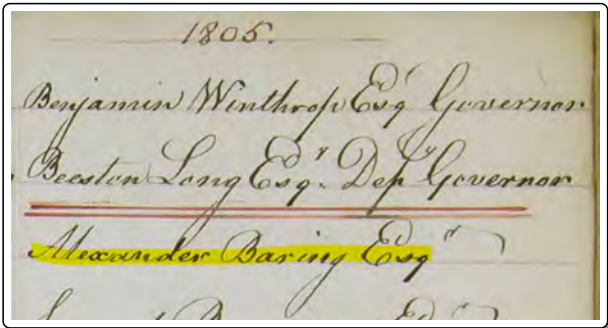 1805.
Benjamin Winthrop Esqr Governor
Beeston Long Esqr. Depy Governor
Alexander Baring Esqr